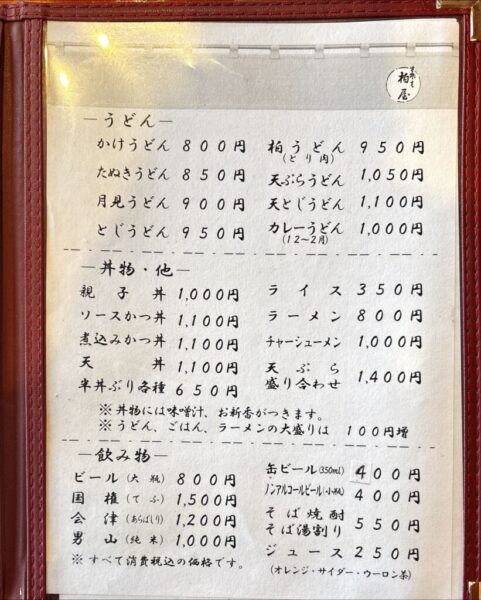 柏屋
―うどん―
かけうどん 800円
たぬきうどん 850円
月見うどん 900円
とじうどん 950円
柏うどん 950円
(とり肉)
天ぷらうどん 1,050円
天とじうどん 1,100円
カレーうどん 1,000円
(12〜2月)
―丼物・他―
親子丼 1,000円
ソースかつ丼 1,100円
煮込みかつ丼 1,100円
天丼 1,100円
半丼ぶり各種 650円
ライス 350円
ラーメン 800円
チャーシューメン 1,000円
天ぷら
盛り合わせ 1,400円
※ 丼物には味噌汁、お新香がつきます。
※ うどん、ごはん、ラーメンの大盛りは 100円増
―飲み物―
ビール(大瓶) 800円
国権(てふ) 1,500円
会津(あらばしり) 1,200円
男山(純米) 1,000円
※ すべて消費税込の価格です。
缶ビール(350ml) 400円
ノンアルコールビール(小瓶) 400円
そば焼酎
そば湯割り 550円
ジュース 250円
(オレンジ・サイダー・ウーロン茶)